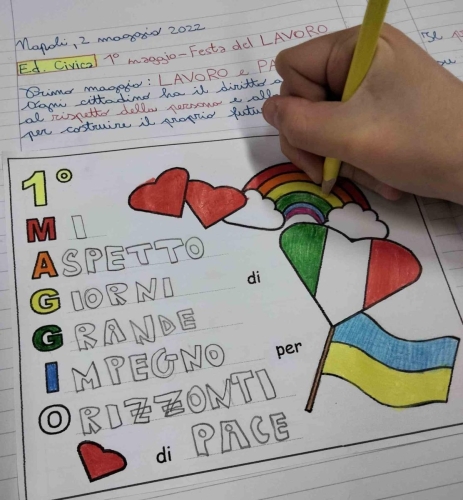 Napoli, 2 maggio 2022
Ed. Civica 1° maggio-Festa del LAVORO
Primo maggio: LAVORO e PA
Ogni cittadino ha il diritto a
al rispetto della persona e all
per costruire il proprio futu
1°
MI
ASPETTO
GIORNI di
GRANDE
IMPEGNO per
ORIZZONTI
di PACE